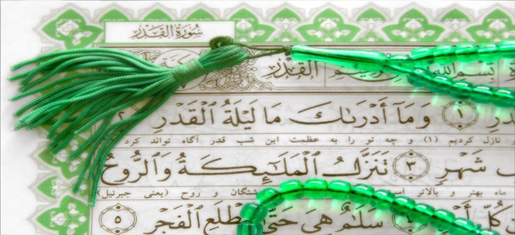 سُورَةُ الْقَدْرِ
الْقَدْرِ
﴿١﴾ وَمَآ أَدْرَىٰكَ مَا لَيْلَةُ ٱلْقَدْرِ ٢
نازل کردیم (۱) و چه تو را به عظمت این شب قدر آگاه تواند کرد
شَهْرٍ ٣ تَنَزَّلُ ٱلْمَلَٰٓئِكَةُ وَٱلرُّوحُ
ماه بهتر و بالاتر و روح (یعنی جبرئیل)
كُلِّ سَلَٰمٌ هِىَ حَتَّىٰ مَطْلَعِ ٱلْفَجْرِ ٥